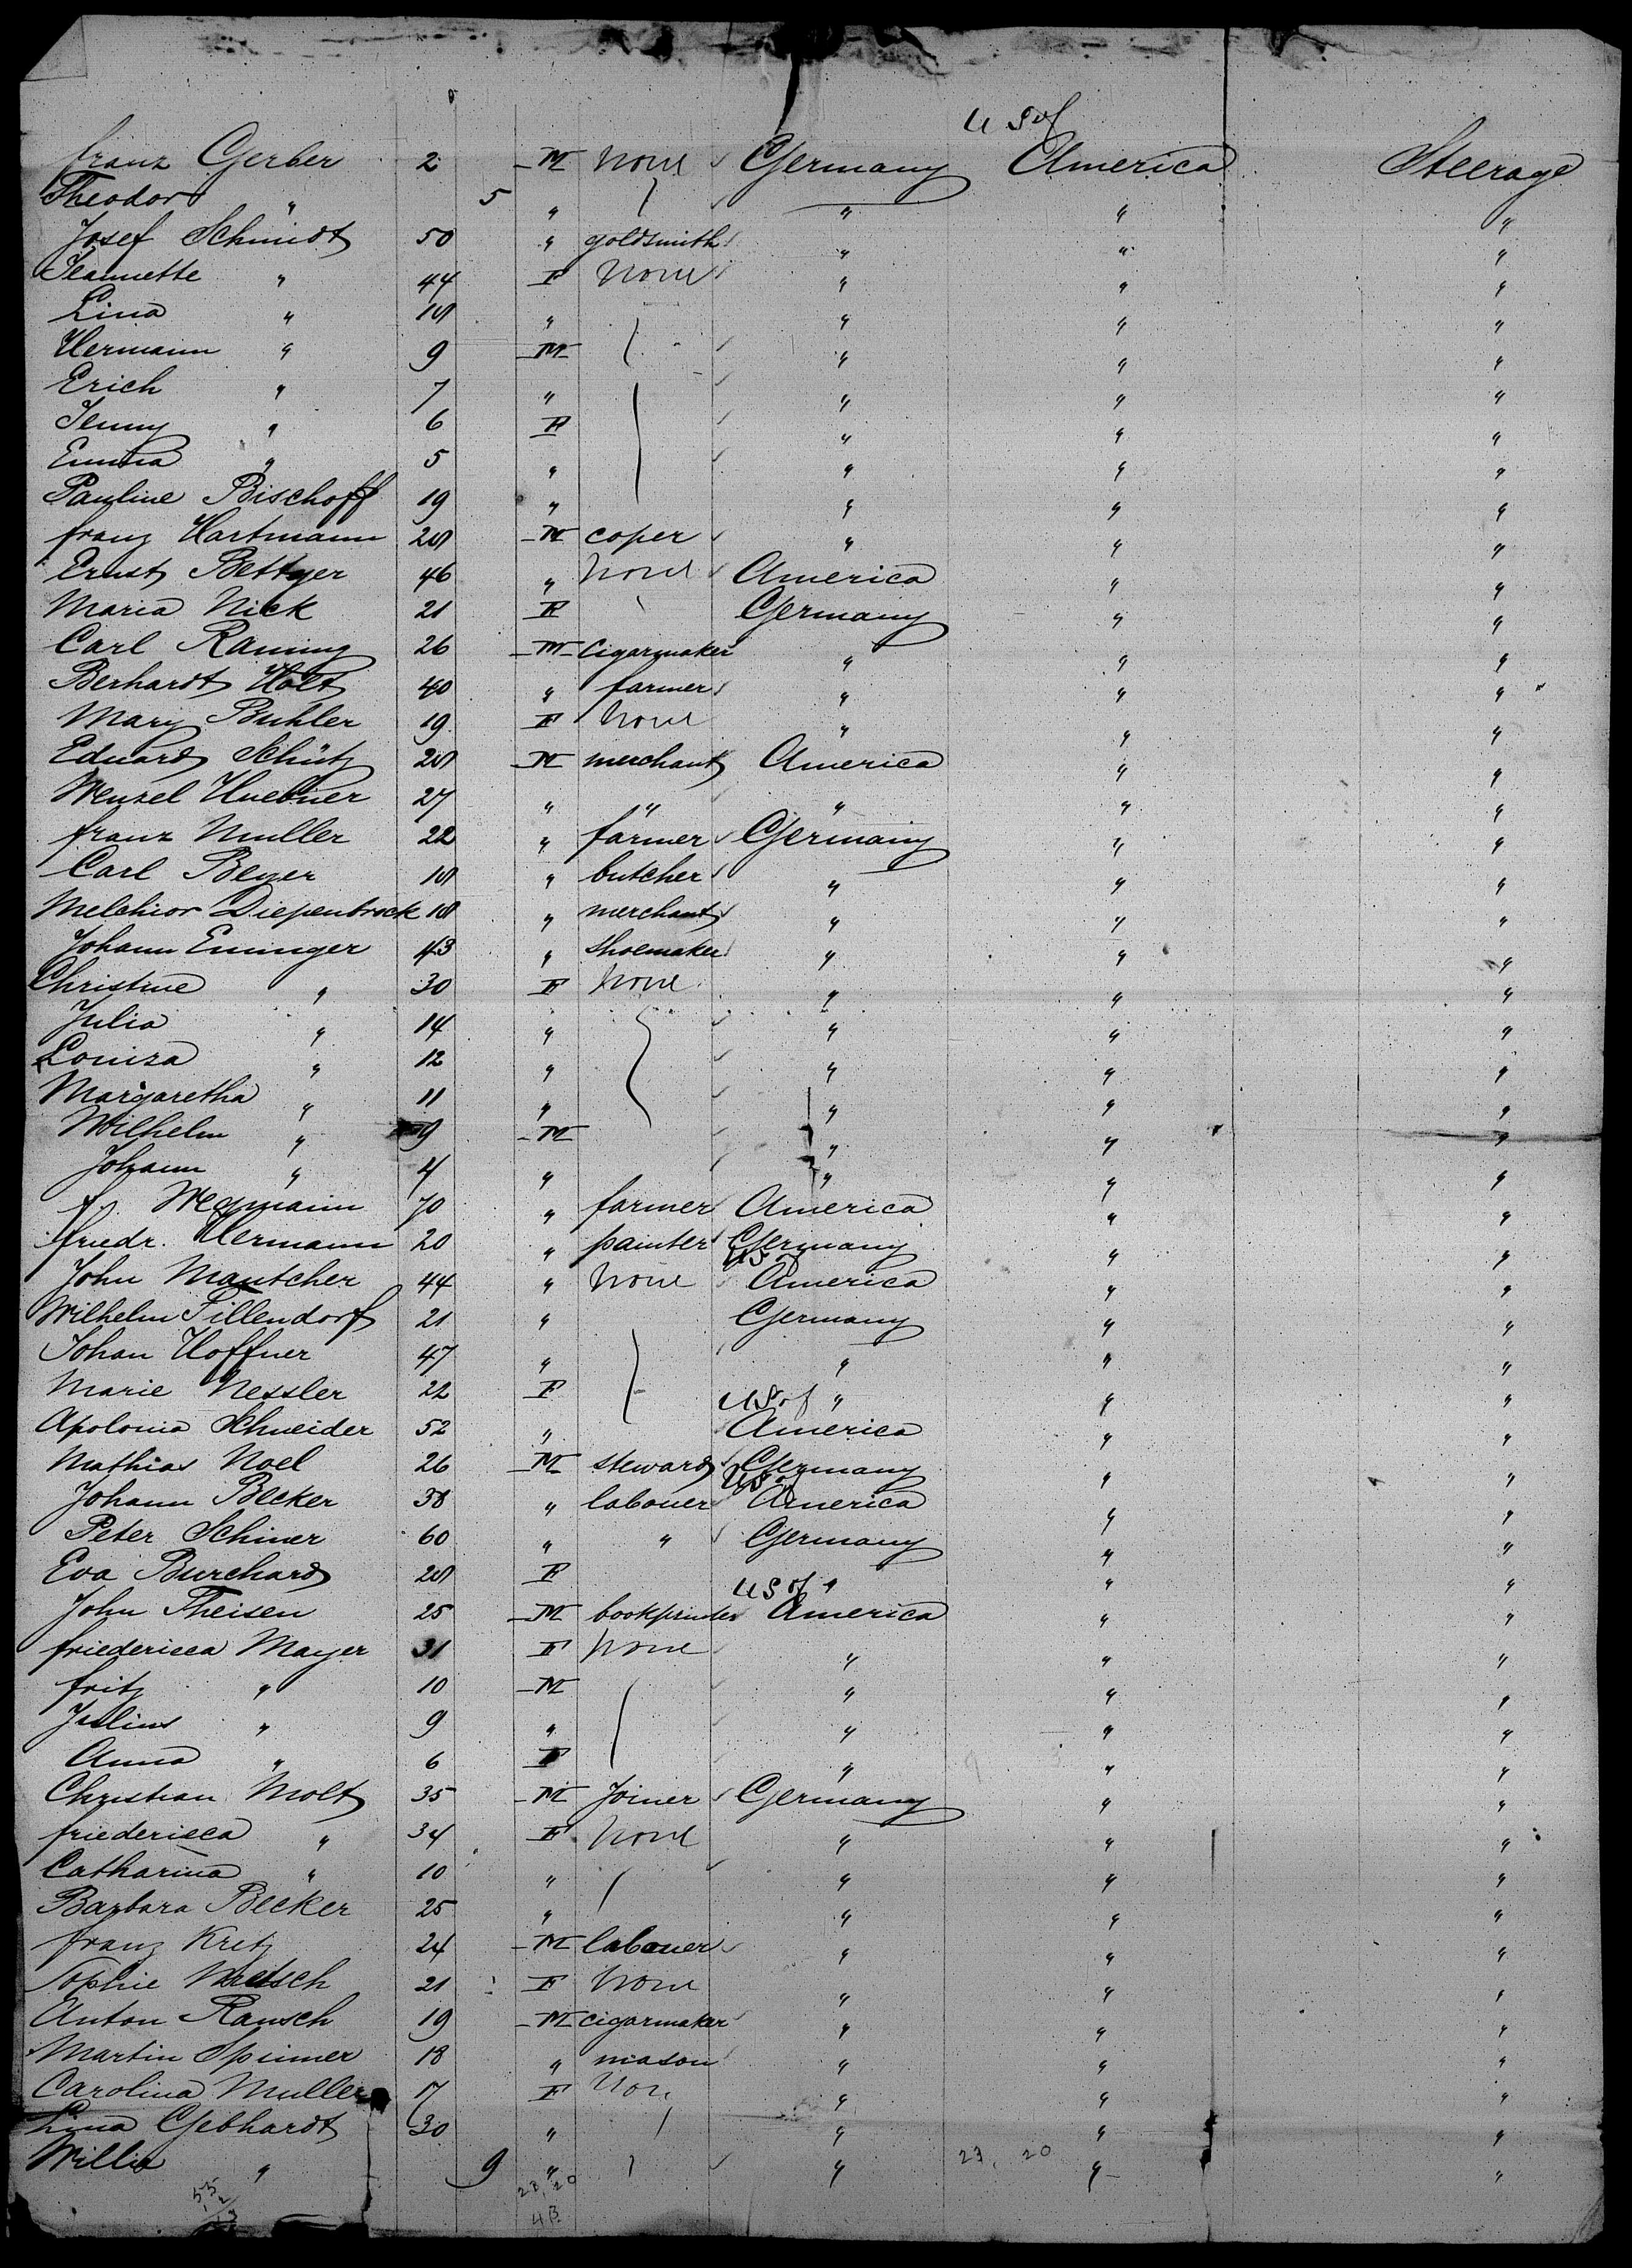 U S of
franz Gerber 2 M None Germany America Steerage
Theodor " 5 " " " "
Josef Schmidt 50 " goldsmith " " "
Jeannette " 44 F None " " "
Lina " 18 " " " "
Hermann " 9 M " " "
Erich " 7 " " " "
Jenny " 6 F " " "
Emma " 5 " " " "
Pauline Bischoff 19 " " " "
franz Hartmann 28 M coper " " "
Ernst Bettger 46 " None America " "
Maria Nick 21 F Germany " "
Carl Raming 26 M Cigarmaker " " "
Berhardt Holt 40 " farmer " " "
Mary Buhler 19 F None " " "
Eduard Schütz 28 M merchant America " "
Wenzel Huebner 27 " " " " "
franz Muller 22 " farmer Germany " "
Carl Beyer 18 " butcher " " "
Melchior Diepenbrock 18 " merchant " " "
Johann Eninger 43 " Shoemaker " " "
Christine " 30 F None " " "
Julia " 14 " " " "
Louisa " 12 " " " "
Margaretha " 11 " " " "
Wilhelm " 9 M " " "
Johann " 4 " " " "
f. Wegmann 70 " farmer America " "
friedr. Hermann 20 " painter Germany " "
John Mautcher 44 " None US of America " "
Wilhelm Fillendorf 21 " Germany " "
Johan Hoffner 47 " " " "
Marie Nessler 22 F " " "
Apolonia Schneider 52 " US of America " "
Mathias Noel 26 M steward Germany " "
Johann Becker 38 " labouer US of America " "
Peter Schiner 60 " " Germany " "
Eva Burchard 28 F " " "
John Theisen 25 M bookprinter US of America " "
friedericca Mayer 31 F None " " "
fritz " 10 M " " "
Julius " 9 " " " "
Anna " 6 F " " "
Christian Molt 35 M Joiner Germany " "
friedericca " 34 F None " " "
Catharina " 10 " " " "
Barbara Becker 25 " " " "
franz Kretz 24 M labouer " " "
Sophie 21 F None " " "
Anton Rausch 19 M cigarmaker " " "
Martin Spinner 18 " mason " " "
Carolina Muller 17 F Non " " "
Lina Gebhardt 30 " " " "
Willie " 9 " " " "
23, 20